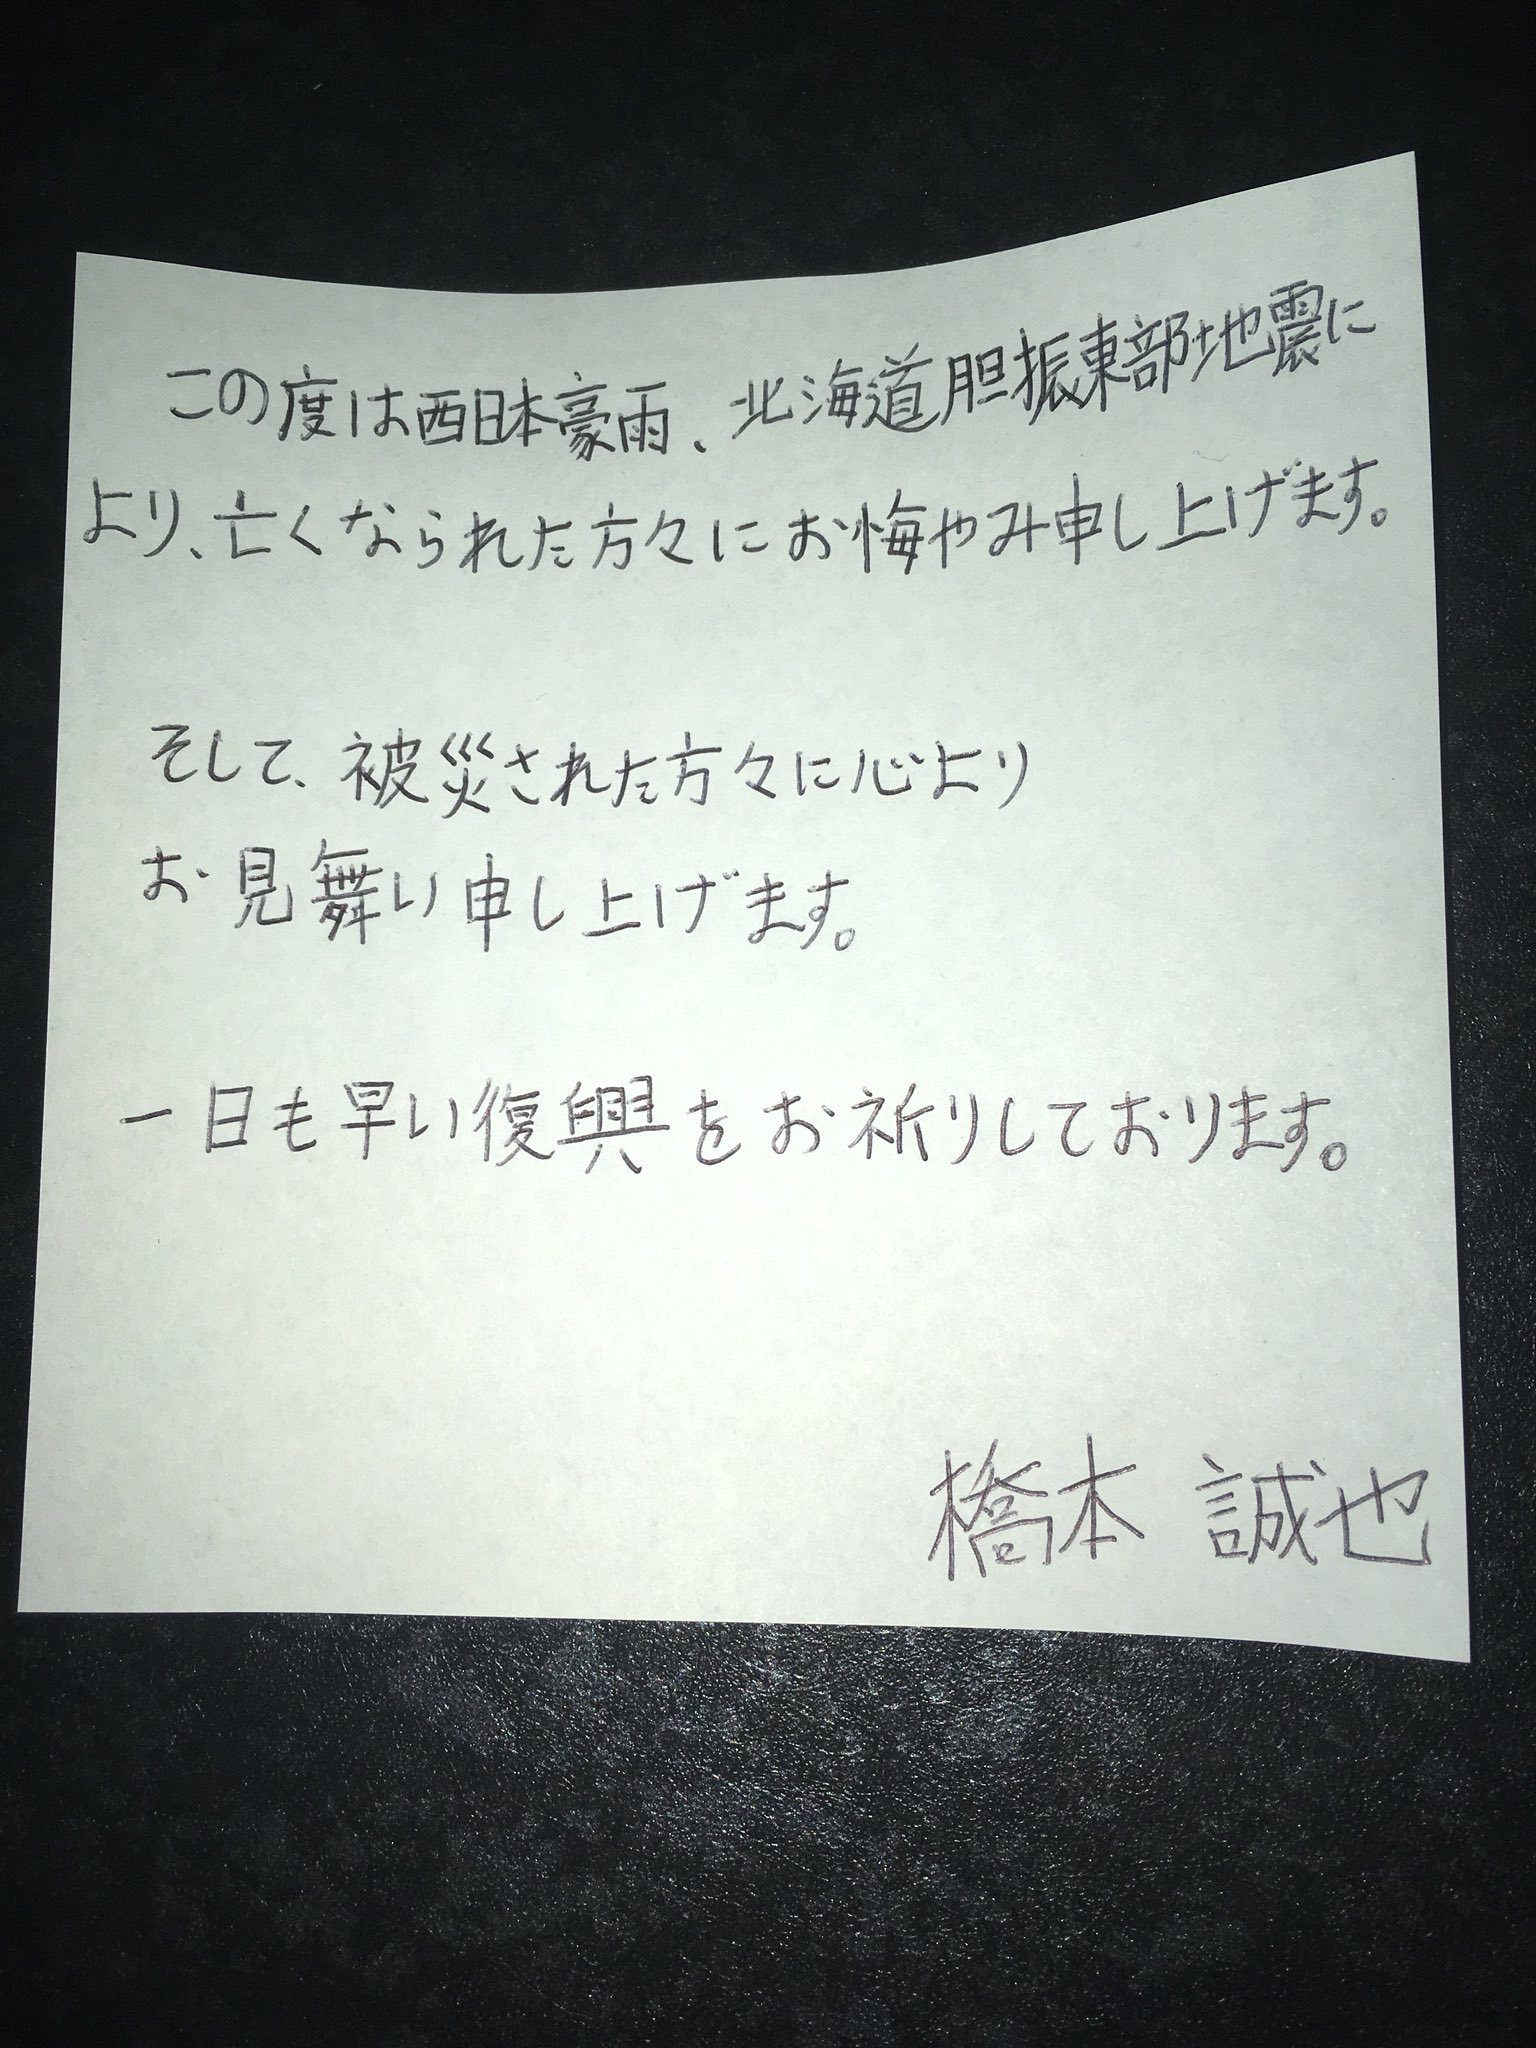 この度は西日本豪雨、北海道胆振東部地震に
より、亡くなられた方々にお悔やみ申し上げます。
そして、被災された方々に心より
お見舞い申し上げます。
一日も早い復興をお祈りしております。
橋本 誠也